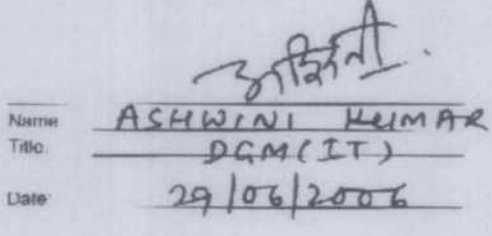 अश्विनी
Name ASHWINI KUMAR
Title. DGM(IT)
Date 29/06/2006